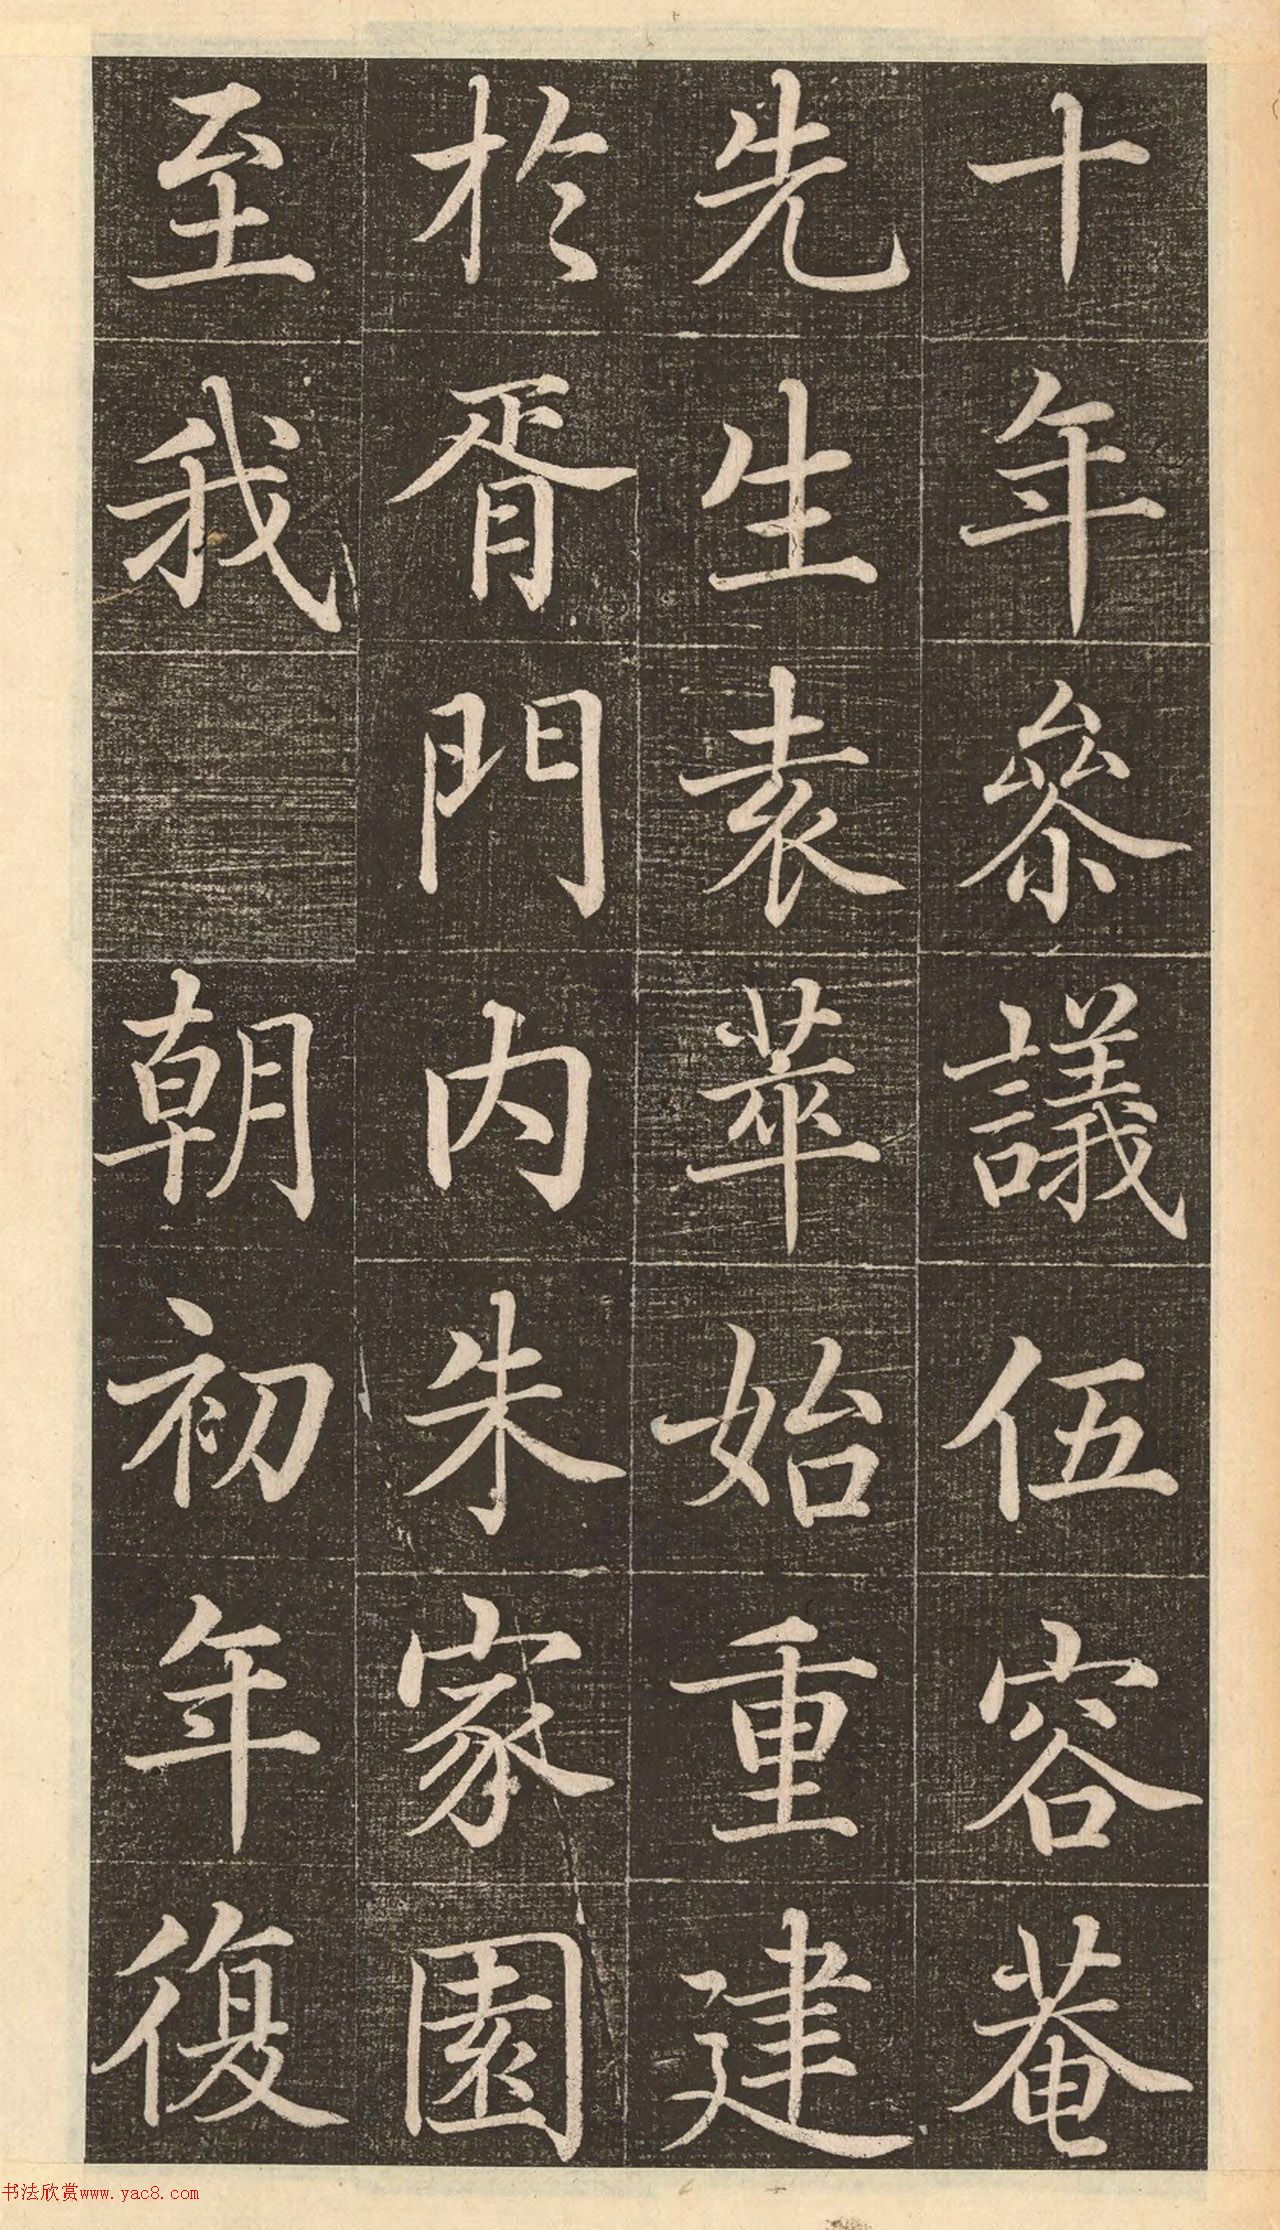 十年參議伍容菴
先生袁萃始重建
於胥門內朱家園
至我 朝初年復
书法欣赏www.yac8.com